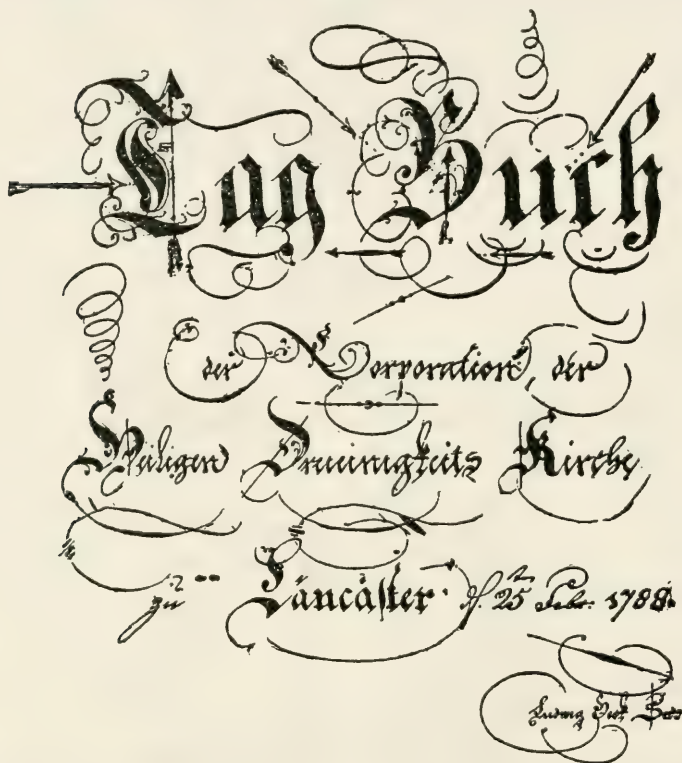 Tag Buch
der Corporation der
Heiligen Dreieinigkeits Kirche
zu Lancaster d. 25 Febr. 1788.
Ludwig